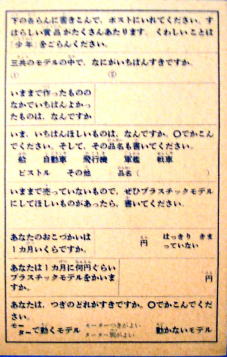 下のあらんに書きこんで、ポストにいれてください。す
ばらしい賞品がたくさんあたります。くわしいことは
「少年」をごらんください。
三共のモデルの中で、なにがいちばんすきですか。
① ②
いままで作ったものの
なかでいちばんよかっ
たものは、なんですか
いま、いちばんほしいものは、なんですか。○でかこん
でください。そして、その品名も書いてください。
船 自動車 飛行機 軍艦 戦車
ピストル その他 品名( )
いままで売っていないもので、ぜひプラスチックモデル
にしてほしいものがあったら、書いてください。
あなたのおこづかいは 円 はっきり きま
1カ月いくらですか。 っていない
あなたは1カ月に何円ぐらい
プラスチックモデルをかいま 円
すか。
あなたは、つぎのどれがすきですか。○でかこんでくだ
さい。
モーターで動くモデル モーターつきがよい 動かないモデル
モーター別がよい